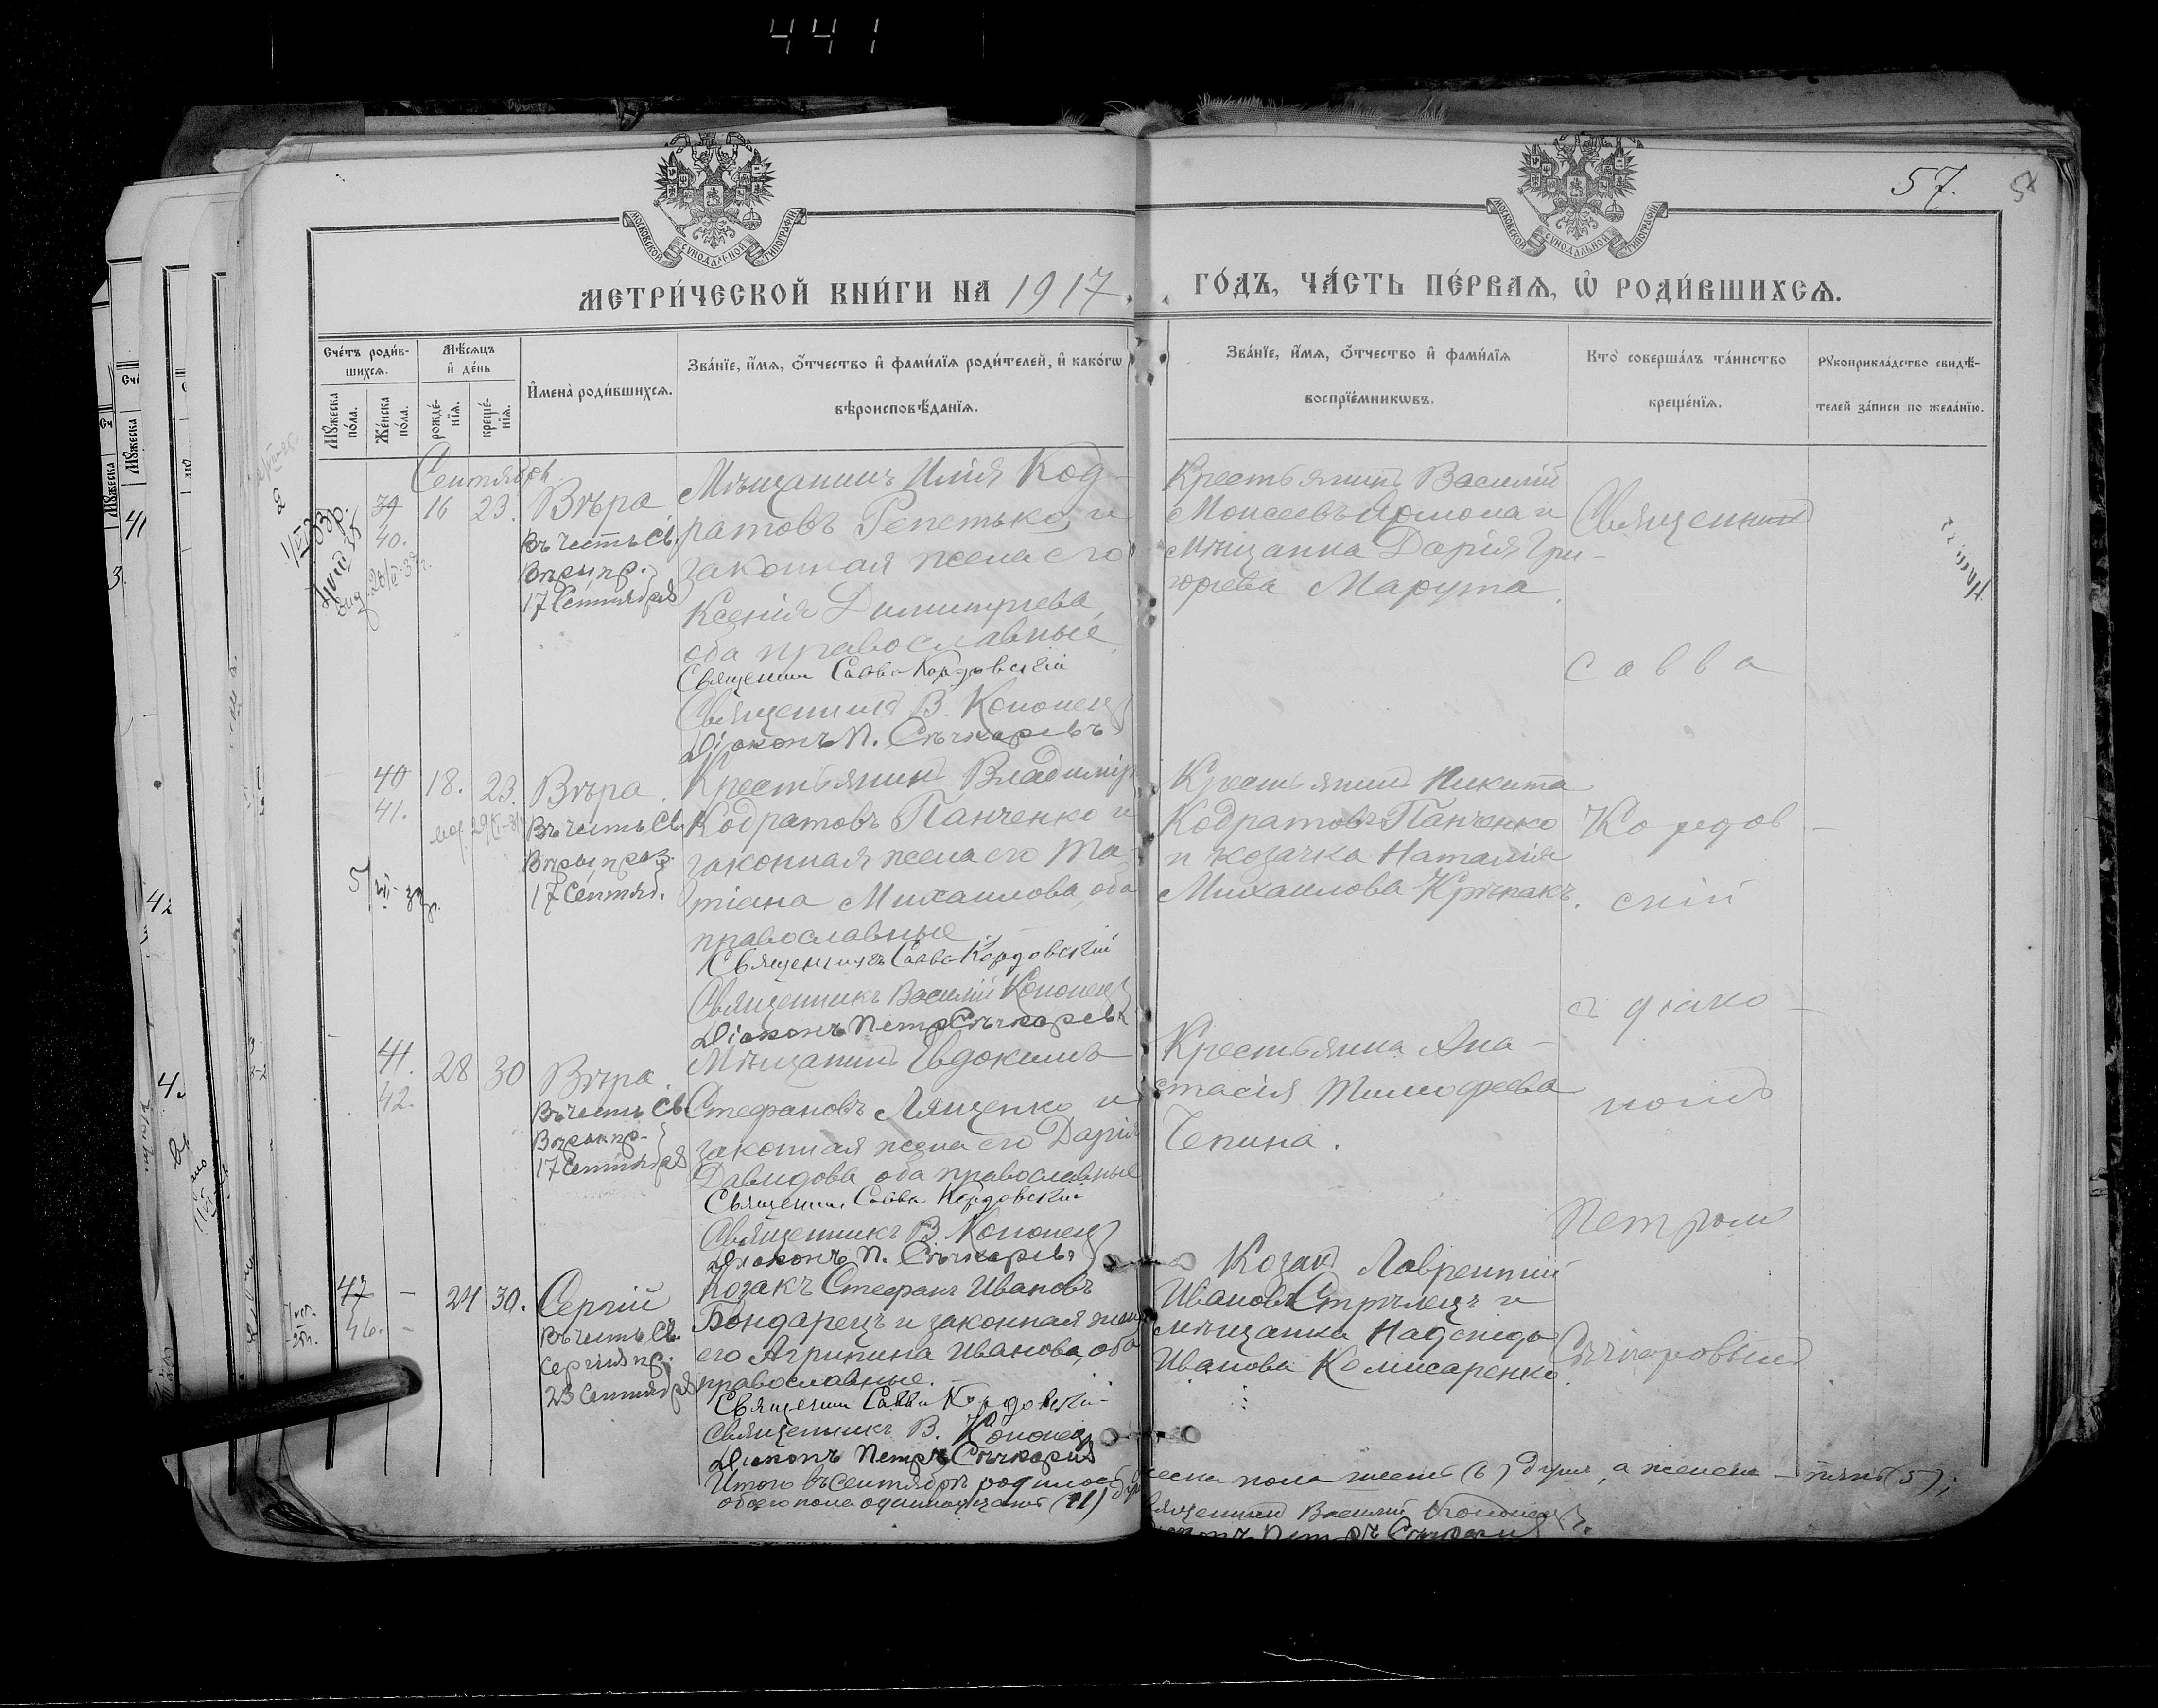 441
57.
МОСКОВСКОЙ СѴНОДАЛЬНОЙ ТИПОГРАФІИ
МОСКОВСКОЙ СѴНОДАЛЬНОЙ ТИПОГРАФІИ
МЕТРИ́ЧЕСКОЙ КНИ́ГИ НА 1917
ГО́ДЪ, ЧА́СТЬ ПЕ́РВАѦ, Ѡ҆ РОДИ́ВШИХСѦ.
Сче́тъ роди́в-
шихсѧ.
Мꙋ́жеска
по́ла.
Же́нска
по́ла.
Мѣ́сѧцъ
и҆ де́нь
рожде́-
нїѧ.
креще́-
нїѧ.
И҆мена̀ роди́вшихсѧ.
Зва́нїе, и҆́мѧ, ѻ҆́тчество и҆ фами́лїѧ роди́телей, и҆ како́гѡ
вѣроисповѣ́данїѧ.
Зва́нїе, и҆́мѧ, ѻ҆́тчество и҆ фами́лїѧ
воспрїе́мникѡвъ.
Кто̀ соверша́лъ та́инство
креще́нїѧ.
Рꙋкоприкла́дство свидѣ́-
телей за́писи по жела́нїю.
Сентябрь
39
40.
16
23.
Вѣра
Въ честь Св.
Вѣры, пр.
17 Сентября
Мѣщанинъ Илія Код-
ратовъ Репетько, и
законная жена его
Ксенія Димитріева,
оба православные
Священникъ Савва Кордовскій
Священникъ В. Кононец
Діаконъ П. Сѣчкаревъ
Крестьянинъ Василій
Моисеевъ Ярмола и
Мѣщанка Дарія Гри-
горіева Марута.
Священникъ
Савва
40
41.
18.
23.
Вѣра.
Въ честь Св.
Вѣры, праз.
17 Сентяб.
Крестьянинъ Владиміръ
Кодратовъ Панченко и
законная жена его Та-
тіана Михаилова, оба
православные
Священникъ Савва Кордовскій
Священникъ Василій Кононец
Діаконъ Петръ Сѣчкаревъ
Крестьянинъ Никита
Кодратовъ Панченко
и козачка Наталія
Михаилова
Кордов-
скій
съ діако-
41.
42.
28
30
Вѣра
Въ честь Св.
Вѣры, пр.
17 Сентября
Мѣщанинъ Евдокимъ
Стефановъ Лященко и
законная жена его Дарія
Давидова оба православные
Священникъ Савва Кордовскій
Священникъ В. Кононец
Діаконъ П. Сѣчкаревъ
Крестьянка Ана-
стасія Тимофеева
Чепина.
номъ
Петромъ
47
46.
-
24
30.
Сергій
Въ честь Св.
Сергія пр.
23 Сентября
Козакъ Стефанъ Ивановъ
Бондарецъ и законная жена
его Агрипина Иванова, оба
православные.
Священникъ Савва Кордовскій
Священникъ В. Кононец
Діаконъ Петръ Сѣчкаревъ
Козакъ Лаврентій
Ивановъ Стрѣлецъ и
мѣщанка Надежда
Иванова Комисаренко.
Сѣчкаревымъ
Итого въ Сентябрѣ родилось
ска пола шесть (6) душъ, а женска - пять (5);
обоего пола одинадцать (11) душ
Священникъ Василій Кононец